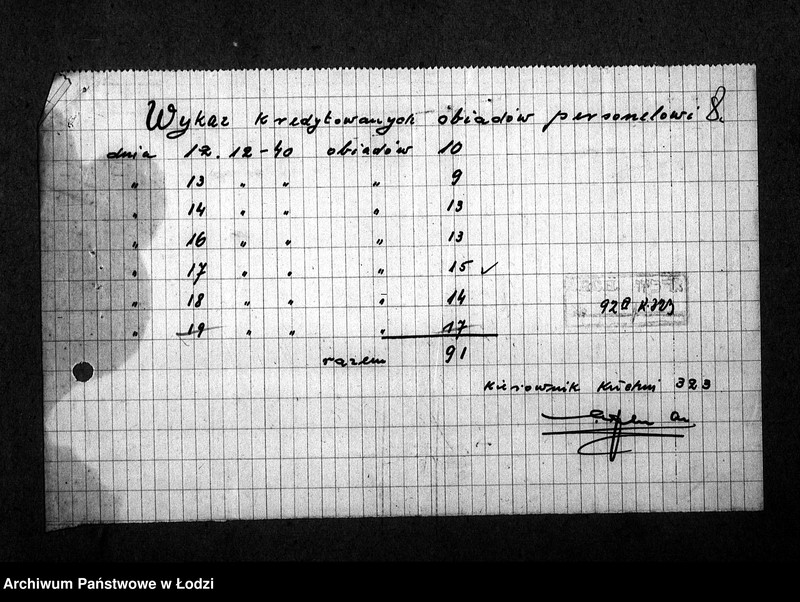 Wykaz kredytowanych obiadów personelowi 8.
dnia 12. 12-40 obiadów 10
" 13 " " " 9
" 14 " " " 13
" 16 " " " 13
" 17 " " " 15 ✓
" 18 " " " 14
" 19 " " " 17
razem 91
92a/K.323
Kierownik Kuchni 323
Archiwum Państwowe w Łodzi